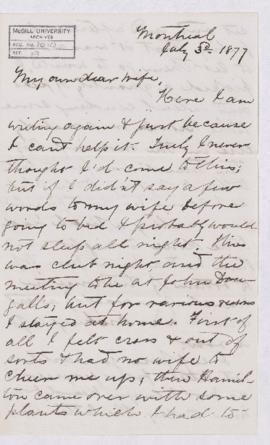 McGILL UNIVERSITY
ARCHIVES
ACC. NO.
REF.
Montreal
July 3rd 1877
My own dear wife,
Here I am
writing again & just because
I can't help it. Truly I never
thought I'd come to this;
but if I didn't say a few
words to my wife before
going to bed I probably would
not sleep all night. This
was club night and the
meeting to be at John Dou-
galls, but for various reasons
I stayed at home. First of
all I felt cross & out of
sorts & had no wife to
cheer me up; then Hamil-
ton came over with some
plants which I had to